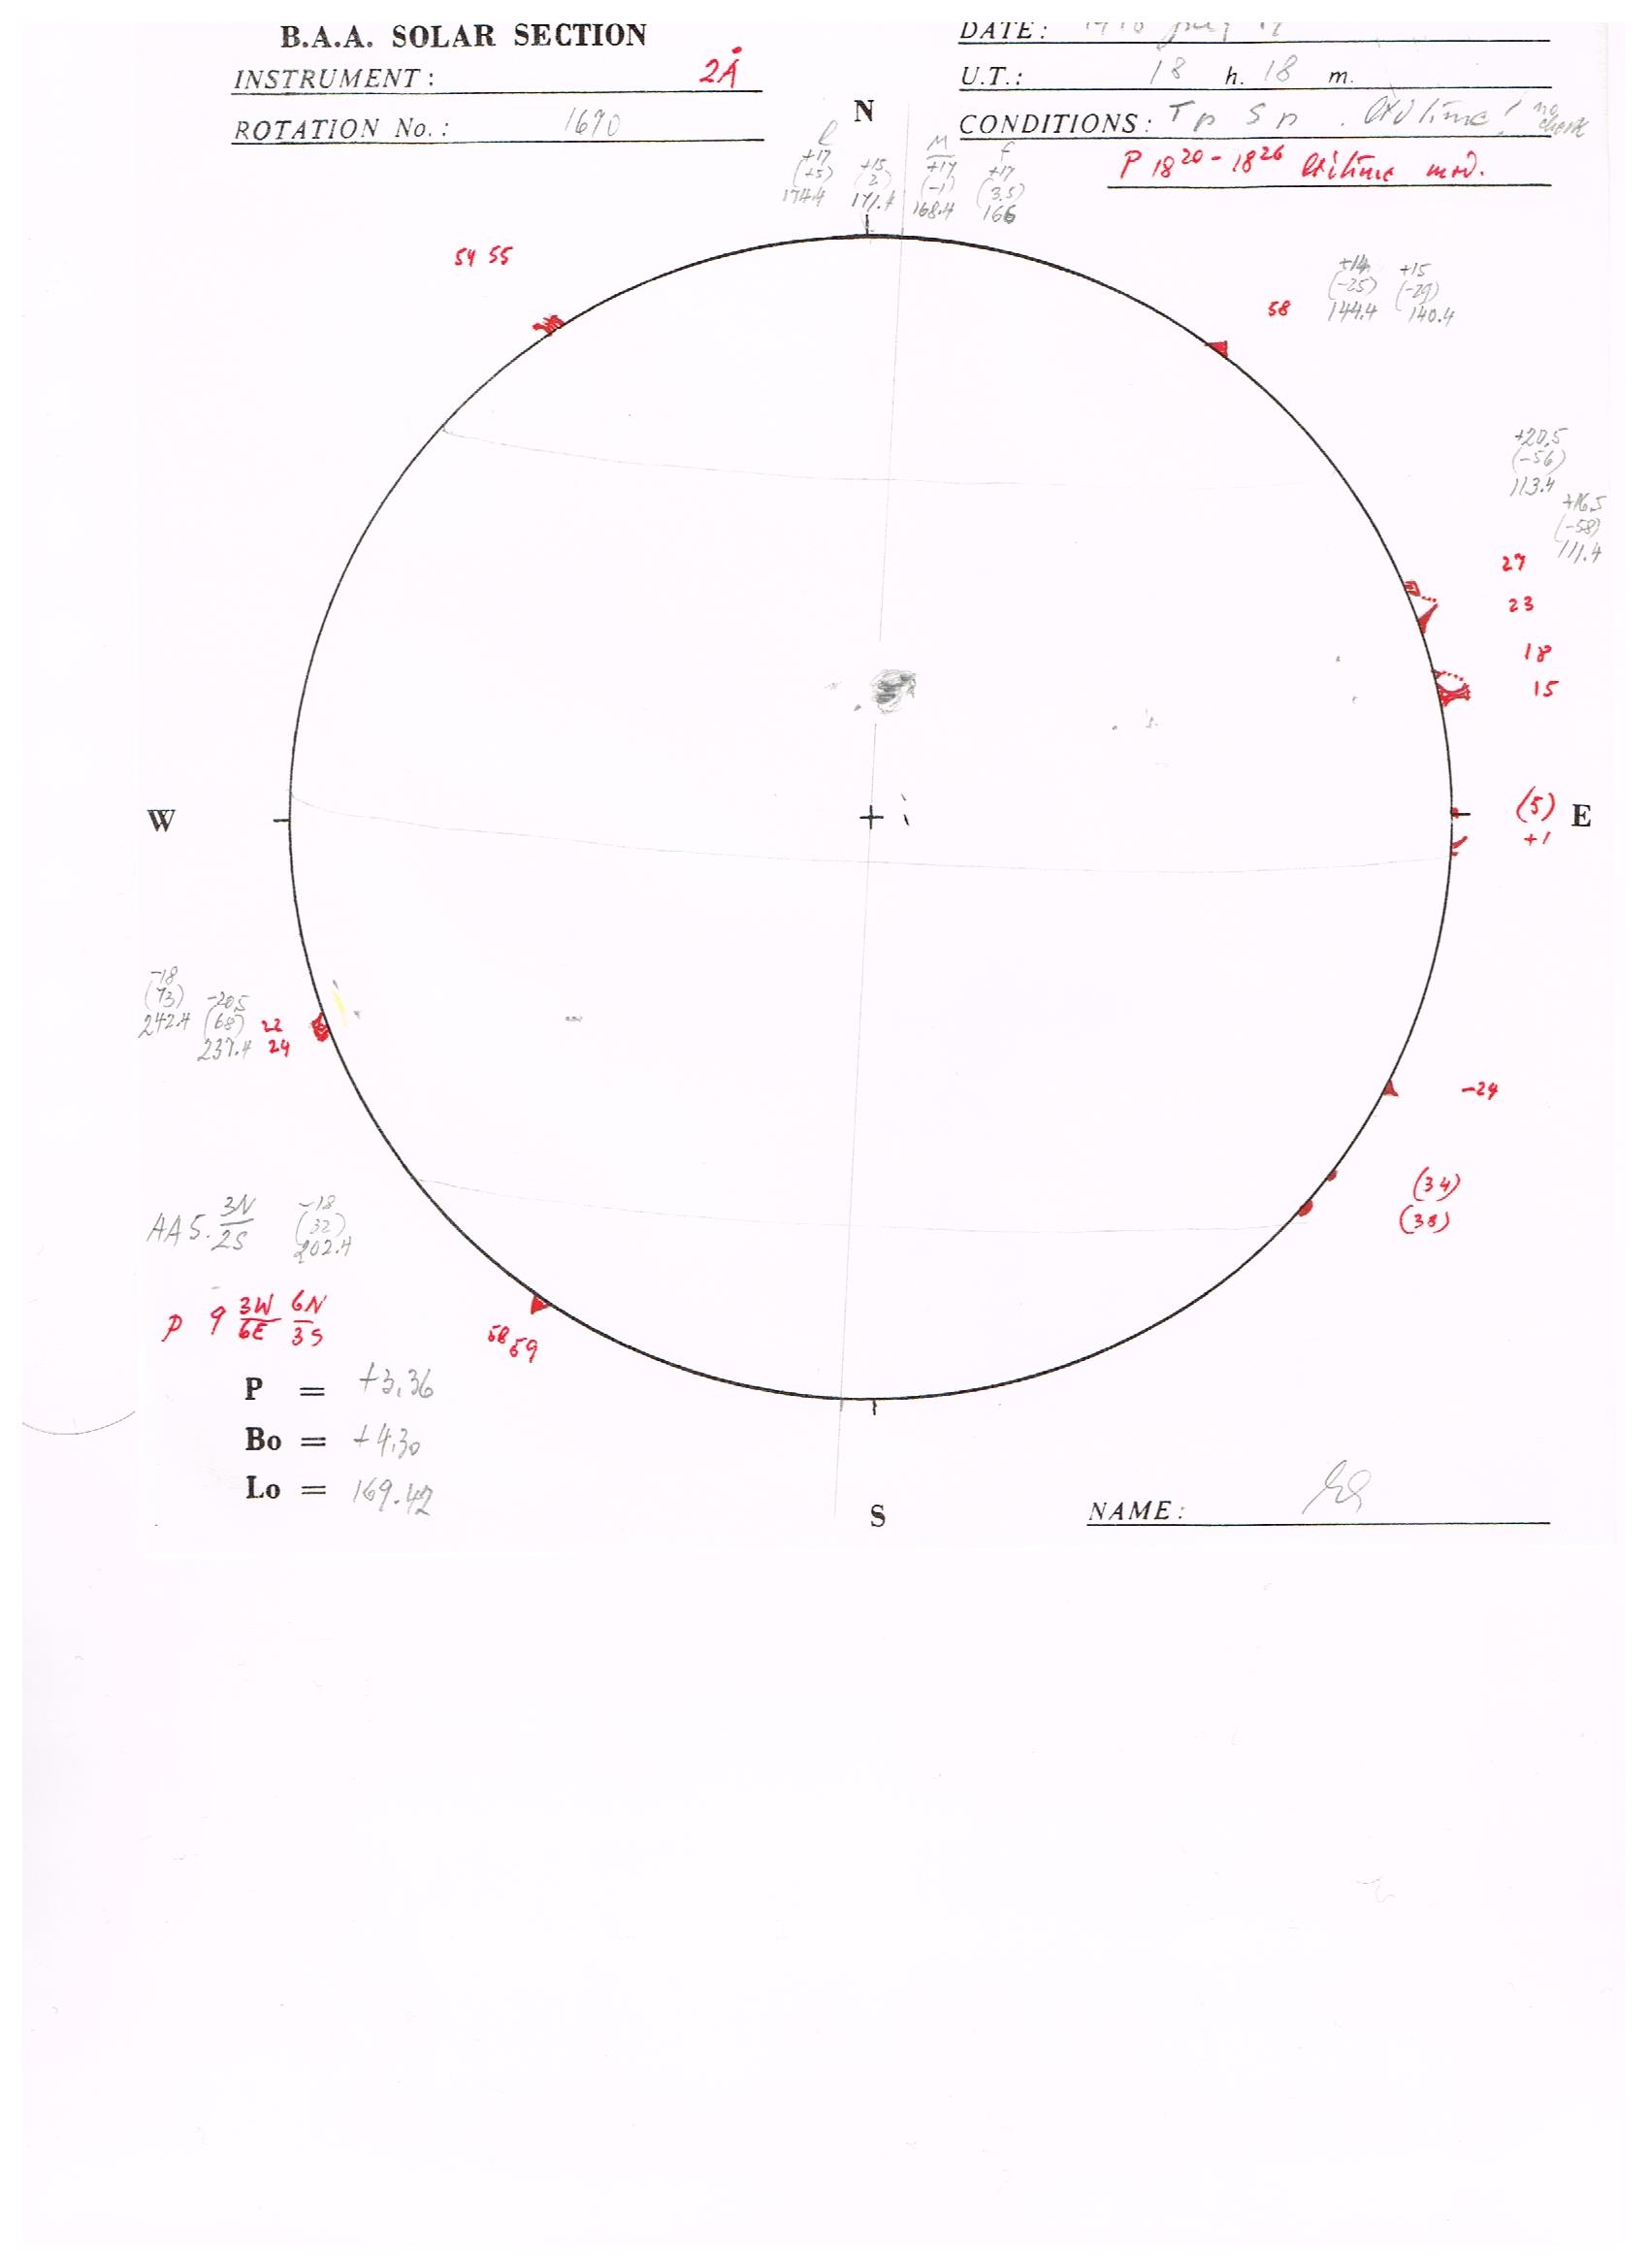 B.A.A. SOLAR SECTION
DATE:
INSTRUMENT: 2Å
U.T.: 18 h. 18 m.
ROTATION No.: 1670
N
CONDITIONS: Tp Sp
P 18 20 - 18 26 mod.
l
+17
(+5)
174.4
+15
(2)
171.4
M
+17
(-1)
168.4
f
+17
(3.5)
166
54 55
58
+14
(-25)
144.4
+15
(-29)
140.4
+20.5
(-56)
113.4
+16.5
(-58)
111.4
27
23
18
15
W
(5) E
+1
-18
(73)
242.4
-20.5
(68)
237.4
22
24
-24
(34)
(38)
AA 5. 3N/2S
-18
(32)
202.4
P 9 3W/6E 6N/3S
58 59
P = +3.36
Bo = +4.30
Lo = 169.42
S
NAME: